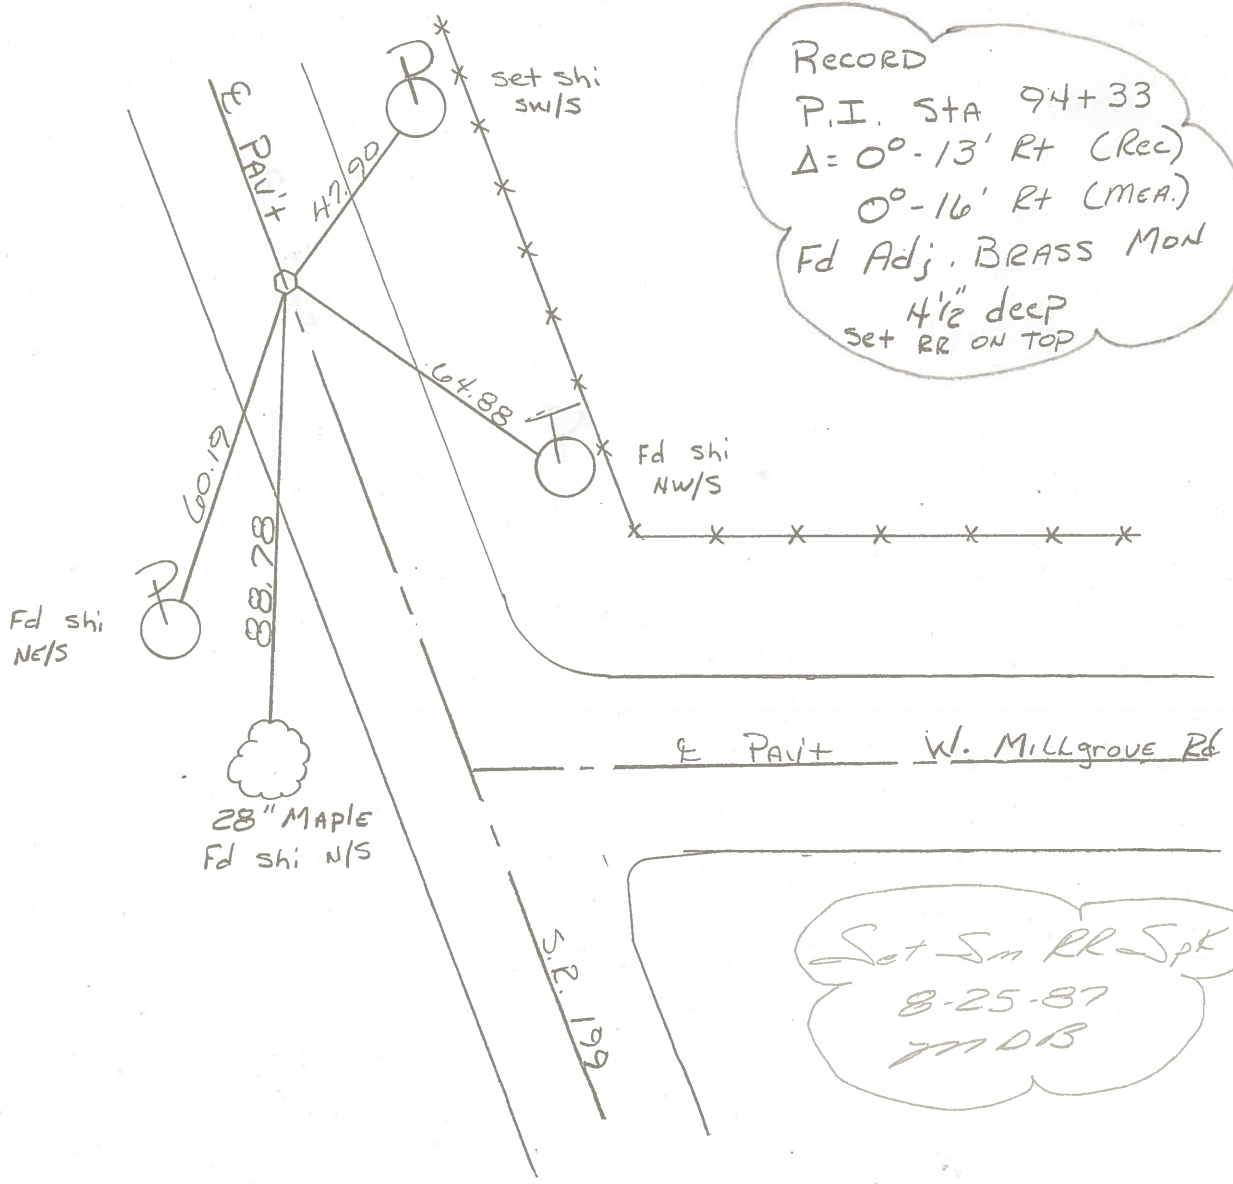 RECORD
P.I. StA 94+33
Δ= 0°-13' Rt (Rec)
0°-16' Rt (MEA.)
Fd Adj. BRASS MON
4½" deep
Set RR ON TOP
set shi
SW/S
℄ PAV't
47.90
64.88
Fd shi
NW/S
60.19
88.78
Fd shi
NE/S
28" MAPlE
Fd shi N/S
℄ PAV't W. MILLgrovE Rd
S.R. 199
Set Sm RR Spk
8-25-87
MDB